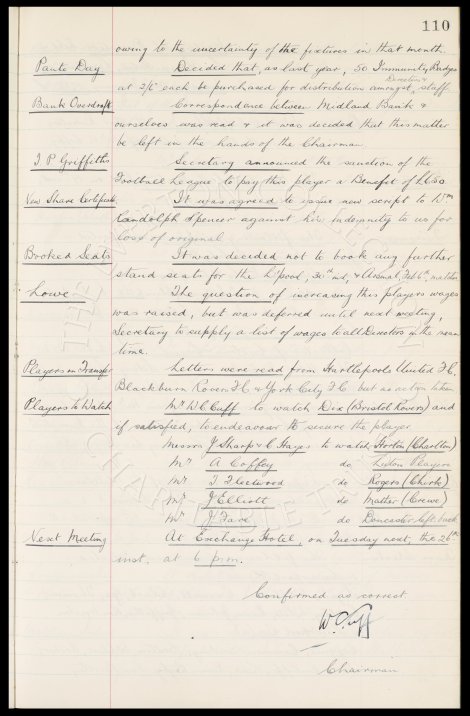 110
owing to the uncertainty of the fixtures in that month.
Panto Day Decided that, as last year, 50 Immunity Badges
Directors &
at 2/6 each be purchased for distribution amongst, staff
Bank Overdraft Correspondence between Midland Bank &
ourselves was read & it was decided that this matter
be left in the hands of the Chairman
J P Griffiths Secretary announced the sanction of the
Football League to pay this player a Benefit of £650
New Share Certificate It was agreed to issue new script to Wm
Randolph Spencer against his indemnity to us for
loss of original
Booked Seats It was decided not to book any further
stand seats for the L'pool, 30th inst, & Arsenal, Feb 6th, matches
Lowe The question of increasing this players wages
was raised, but was deferred until next meeting,
Secretary to supply a list of wages to all Directors in the mean
time.
Players on Transfer Letters were read from Hartlepools United F.C.
Blackburn Rovers F.C & York City F.C but no action taken
Players to Watch Mr W.C. Cuff to watch Dix (Bristol Rovers) and
if satisfied, to endeavour to secure the player
Messrs J Sharp & C Hayes to watch Horton (Charlton)
Mr A Coffey do Lisdon Players
Mr T Fleetwood do Rogers (Chirk)
Mr J Elliott do Mather (Crewe)
Mr J Fare do Doncaster left back
Next Meeting At Exchange Hotel, on Tuesday next, the 26th
inst, at 6 p.m.
Confirmed as correct
W.C. Cuff
Chairman
THE
CHARITABLE TRUST